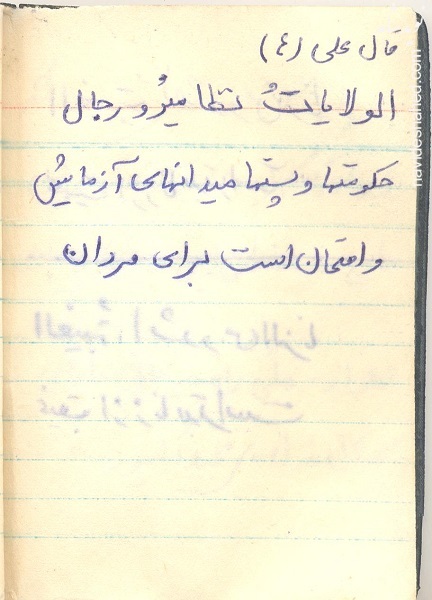 قال علی (ع)
الولایاتُ تظامیرُ و رجال
حکومتها و پستها میدانهای آزمایش
و امتحان است برای مردان
navideshahed.com